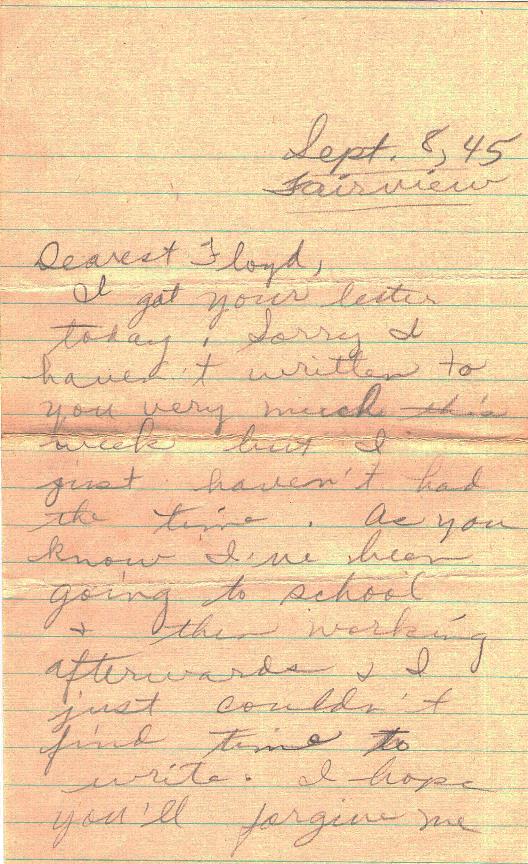 Sept. 8, 45
Fairview
Dearest Floyd,
I got your letter
today. Sorry I
haven't written to
you very much this
week but I
just haven't had
the time. As you
know I've been
going to school
+ then working
afterwards & I
just couldn't
find time to
write. I hope
you'll forgive me